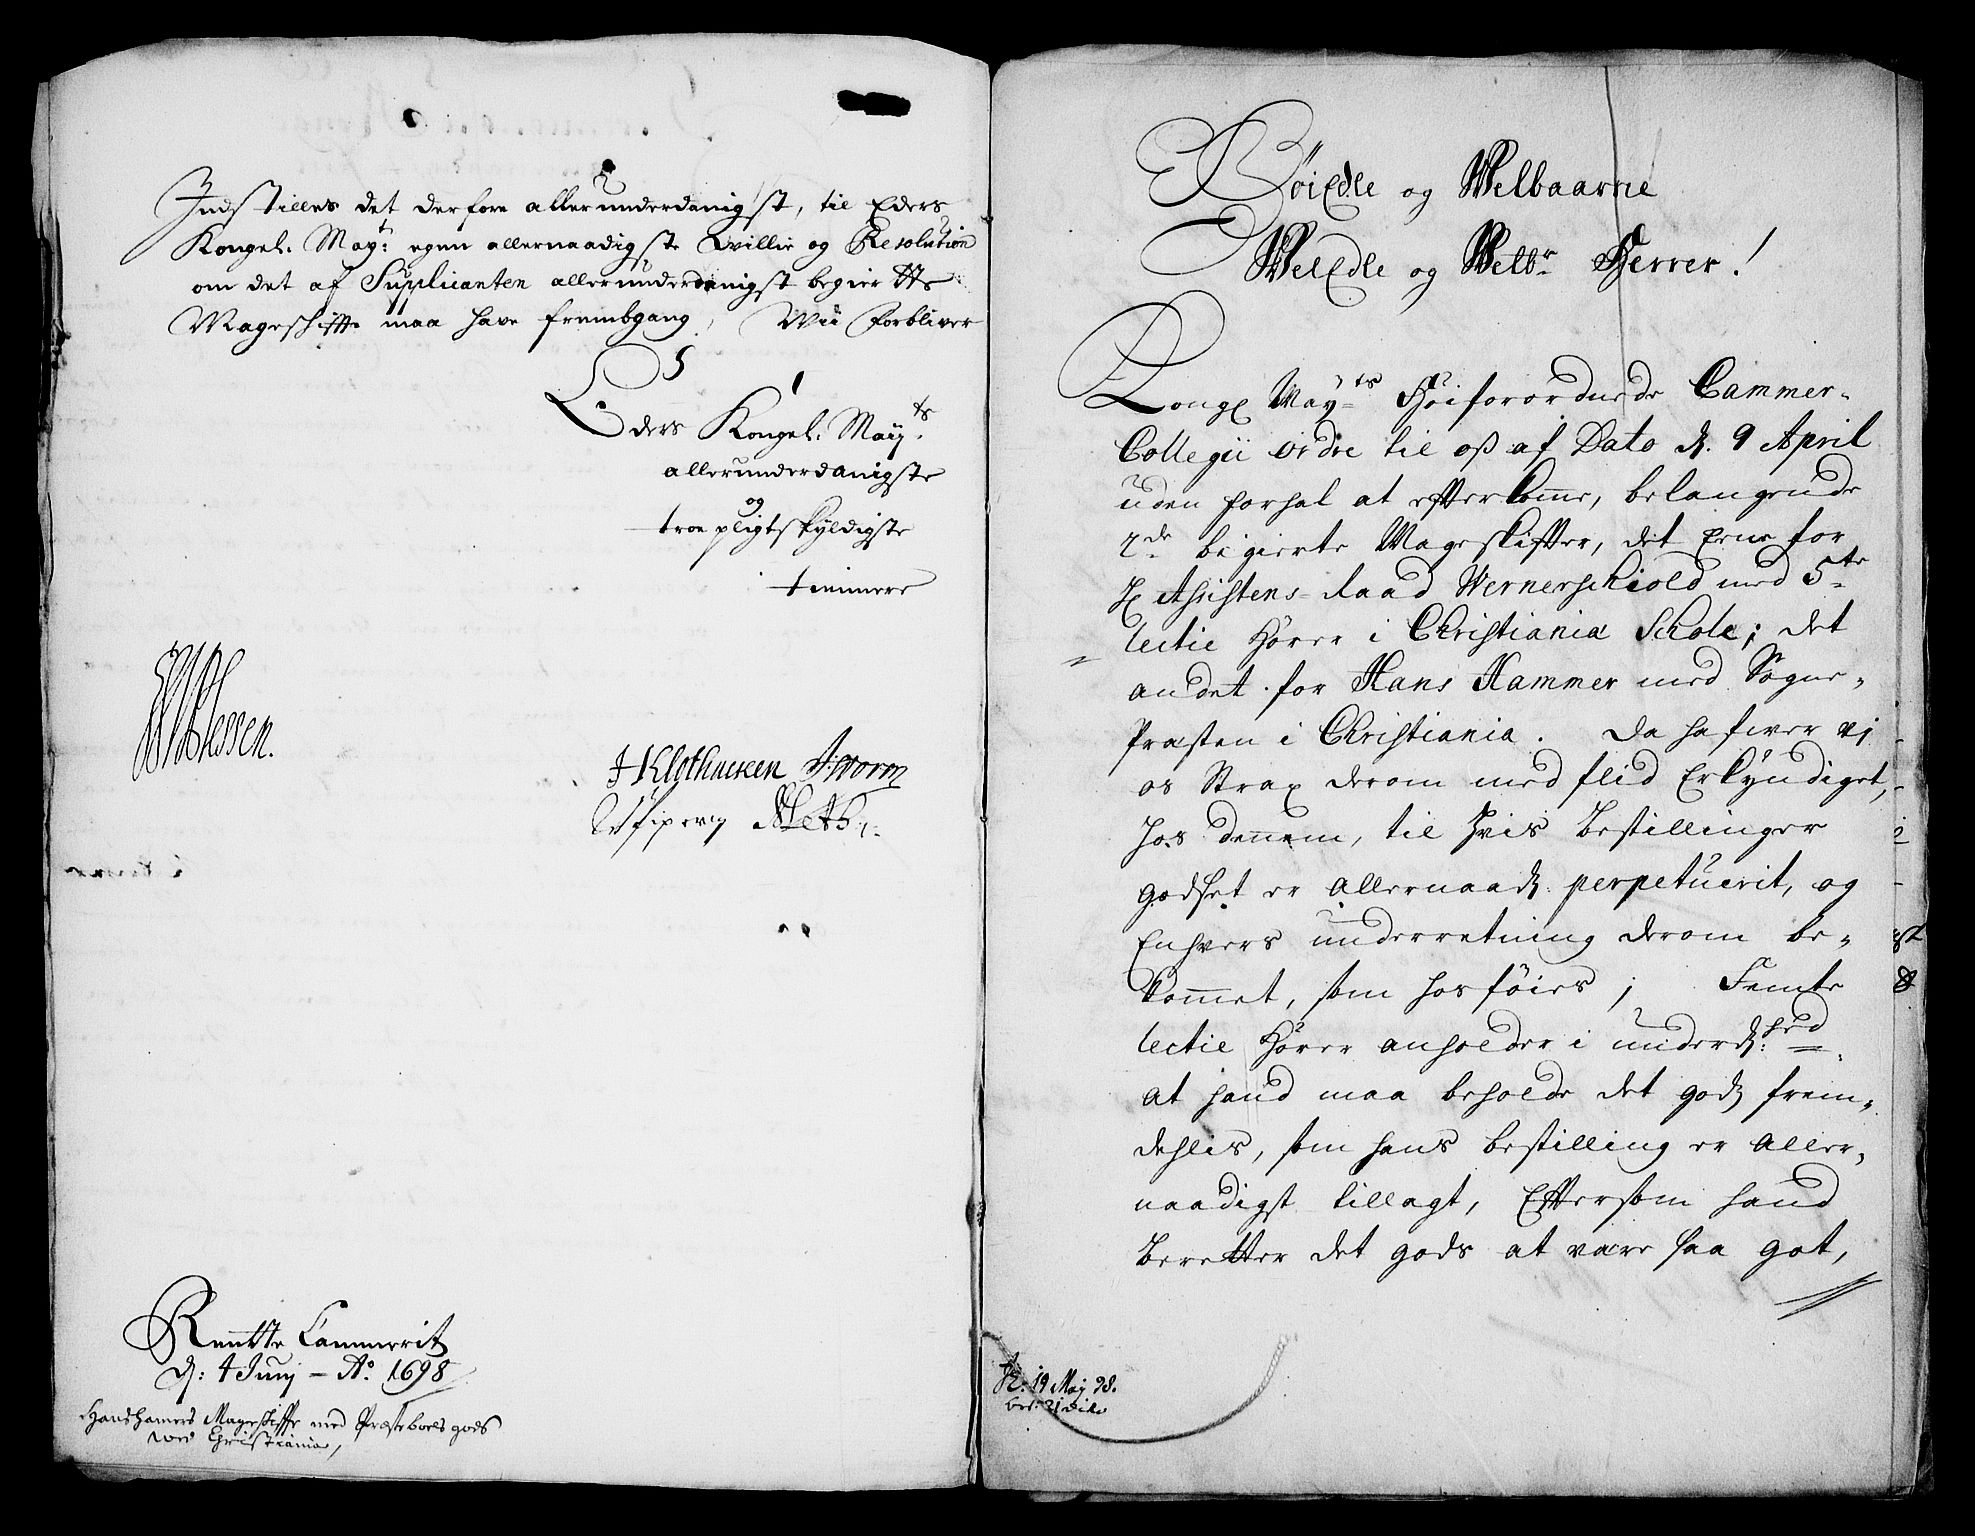 Indstilles det derfore allerunderdanigst, til Eders
Kongel. Mayt: egen allernaadigste Willie og Resolution
om det af Supplicanten allerunderdanigst begiertte
Mageschifte maa have frembgang, Wii forbliver
Eders Kongel. Mayts
allerunderdanigste
og
troe pligtskyldigste
tiennere
J Worm
Rentte Cammerit
d: 4 Junj - Ao 1698
Hans hamers Mageskifte med Præsteboels gods
wed Christiania,
HöiEdle og Welbaarne
WelEdle og Welbr Herrer!
Kongl Mayts Höiforordnede Cammer-
Collegii ordre til oss af Dato d. 9 April
uden forhal at efterkomme, belangende
2de begierte Mageskifter, det Eene for
H Assistens-Raad Wernerschiold med 5te
lectie Hörer i Christiania Schole; det
andet for Hans Hammer med Sogne-
Præsten i Christiania. Da hafver vi
os Strax derom med flid Erkyndiget,
hos dennem, til hvis bestillinger
godset er allernaad: perpetuerit, og
Enhvers underretning derom be-
kommet, som hosföies; Femte
lectie Hörer anholder i underd:hed
at hand maa beholde det gods frem-
dehlis, som hans bestilling er aller-
naadigst tillagt, Eftersom hand
beretter det gods at være saa got,
19 Maj 98.